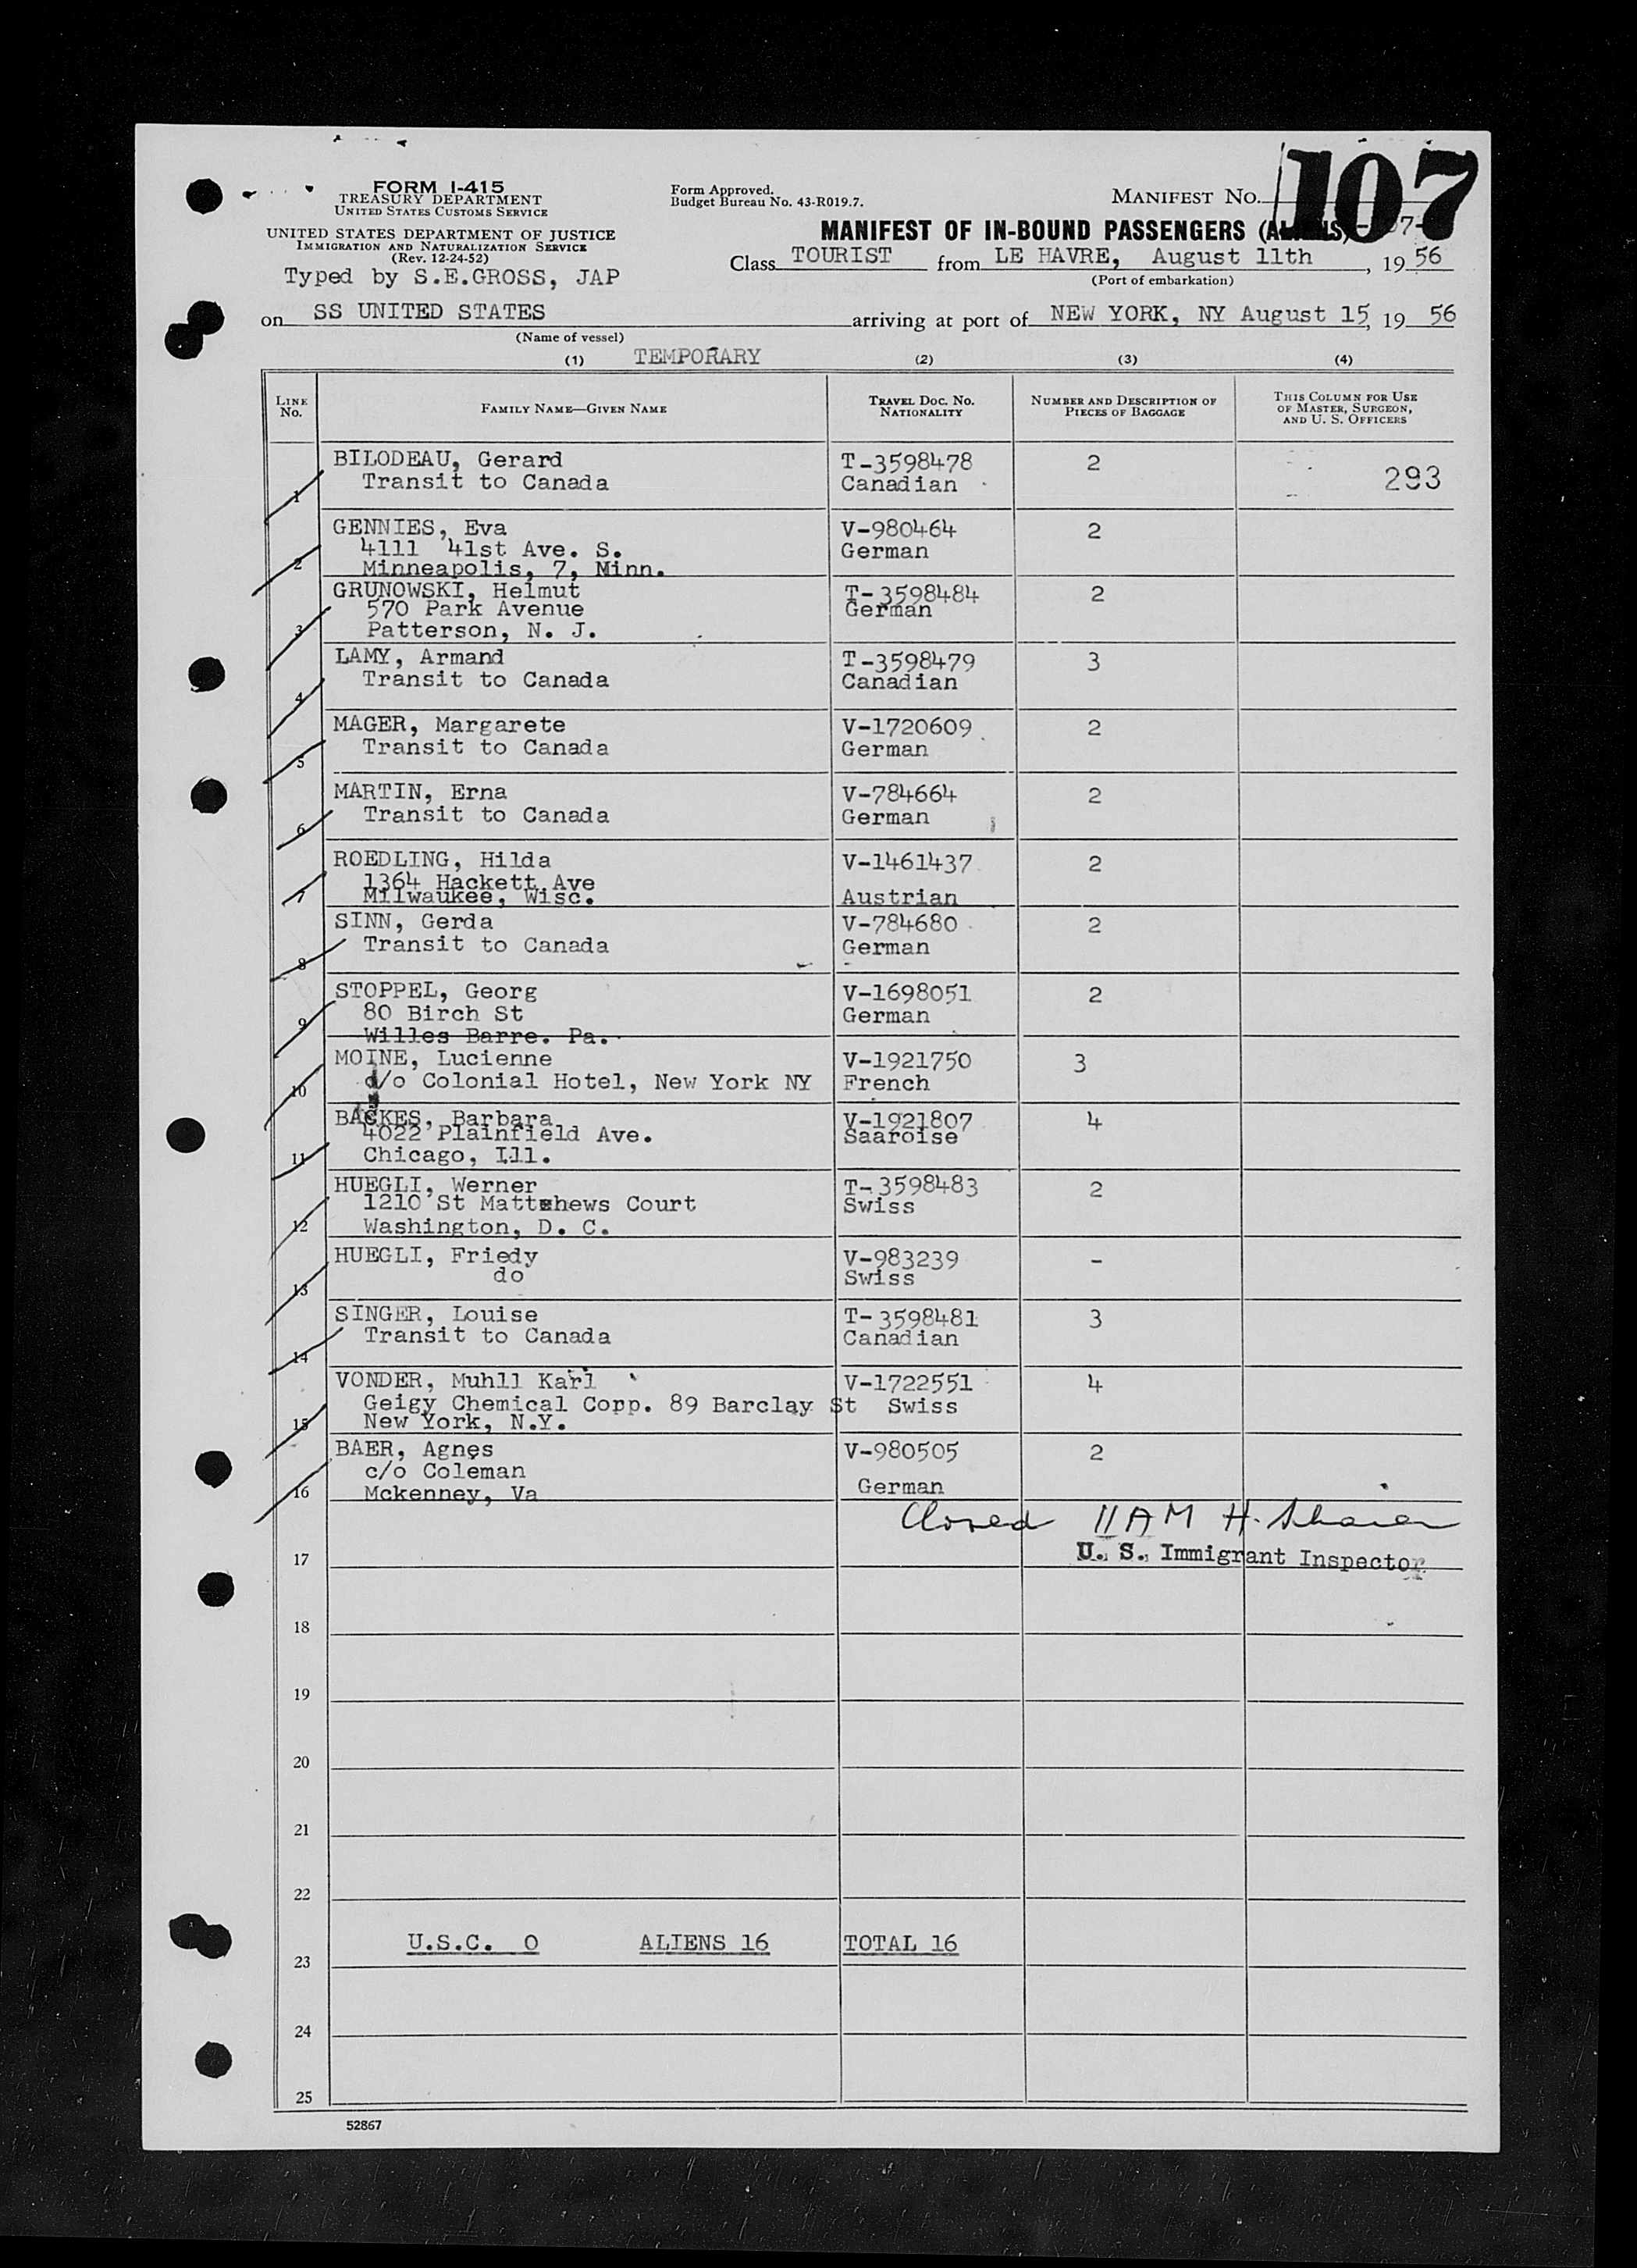 FORM I-415
TREASURY DEPARTMENT
UNITED STATES CUSTOMS SERVICE
UNITED STATES DEPARTMENT OF JUSTICE
IMMIGRATION AND NATURALIZATION SERVICE
(Rev. 12-24-52)
Typed by S.E.GROSS, JAP
Form Approved.
Budget Bureau No. 43-R019.7.
MANIFEST No. 107
MANIFEST OF IN-BOUND PASSENGERS (ALIENS)
Class TOURIST from LE HAVRE, August 11th, 19 56
(Port of embarkation)
on SS UNITED STATES arriving at port of NEW YORK, NY August 15, 19 56
(Name of vessel)
(1) TEMPORARY (2) (3) (4)
LINE No. FAMILY NAME—GIVEN NAME TRAVEL DOC. NO. NATIONALITY NUMBER AND DESCRIPTION OF PIECES OF BAGGAGE THIS COLUMN FOR USE OF MASTER, SURGEON, AND U. S. OFFICERS
BILODEAU, Gerard T-3598478 2
1 Transit to Canada Canadian 293
GENNIES, Eva V-980464 2
2 4111 41st Ave. S. German
Minneapolis, 7, Minn.
GRUNOWSKI, Helmut T-3598484 2
3 570 Park Avenue German
Patterson, N. J.
LAMY, Armand T-3598479 3
4 Transit to Canada Canadian
MAGER, Margarete V-1720609 2
5 Transit to Canada German
MARTIN, Erna V-784664 2
6 Transit to Canada German
ROEDLING, Hilda V-1461437 2
7 1364 Hackett Ave
Milwaukee, Wisc. Austrian
SINN, Gerda V-784680 2
8 Transit to Canada German
STOPPEL, Georg V-1698051 2
9 80 Birch St German
Willes Barre. Pa.
MOINE, Lucienne V-1921750 3
10 c/o Colonial Hotel, New York NY French
BACKES, Barbara V-1921807 4
11 4022 Plainfield Ave. Saaroise
Chicago, Ill.
HUEGLI, Werner T-3598483 2
12 1210 St Mattehews Court Swiss
Washington, D. C.
HUEGLI, Friedy V-983239 -
13 do Swiss
SINGER, Louise T-3598481 3
14 Transit to Canada Canadian
VONDER, Muhll Karl V-1722551 4
15 Geigy Chemical Copp. 89 Barclay St Swiss
New York, N.Y.
BAER, Agnes V-980505 2
c/o Coleman
16 Mckenney, Va German
Closed 11AM H.
17 U. S. Immigrant Inspector
18
19
20
21
22
23 U.S.C. 0 ALIENS 16 TOTAL 16
24
25
52867